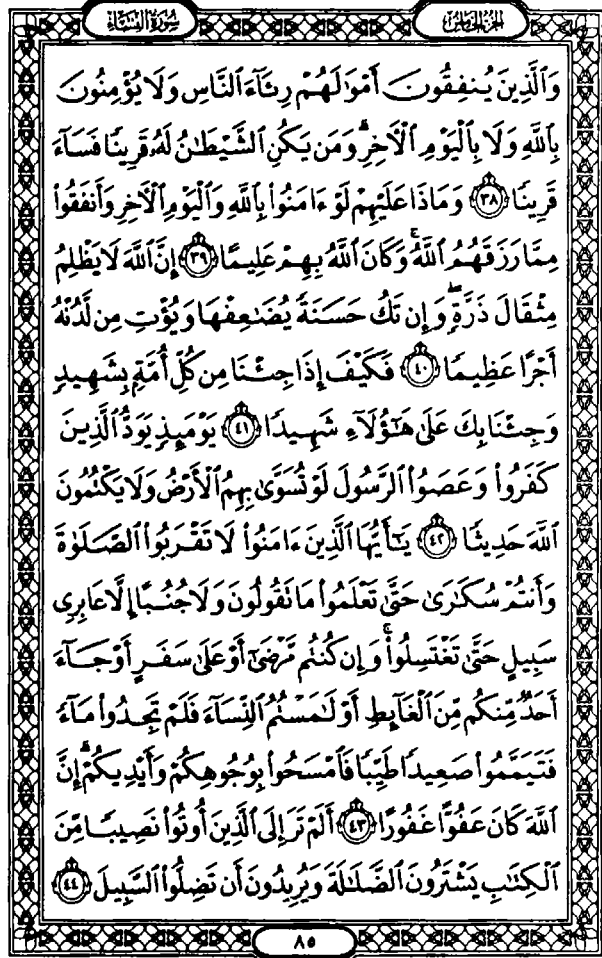 الجزء الخامس
سورة النساء
وَٱلَّذِينَ يُنفِقُونَ أَمْوَٰلَهُمْ رِئَآءَ ٱلنَّاسِ وَلَا يُؤْمِنُونَ
بِٱللَّهِ وَلَا بِٱلْيَوْمِ ٱلْـَٔاخِرِ ۗ وَمَن يَكُنِ ٱلشَّيْطَـٰنُ لَهُۥ قَرِينًا فَسَآءَ
قَرِينًا ﴿٣٨﴾ وَمَاذَا عَلَيْهِمْ لَوْ ءَامَنُوا۟ بِٱللَّهِ وَٱلْيَوْمِ ٱلْـَٔاخِرِ وَأَنفَقُوا۟
مِمَّا رَزَقَهُمُ ٱللَّهُ ۚ وَكَانَ ٱللَّهُ بِهِمْ عَلِيمًا ﴿٣٩﴾ إِنَّ ٱللَّهَ لَا يَظْلِمُ
مِثْقَالَ ذَرَّةٍ ۖ وَإِن تَكُ حَسَنَةً يُضَـٰعِفْهَا وَيُؤْتِ مِن لَّدُنْهُ
أَجْرًا عَظِيمًا ﴿٤٠﴾ فَكَيْفَ إِذَا جِئْنَا مِن كُلِّ أُمَّةٍۭ بِشَهِيدٍ
وَجِئْنَا بِكَ عَلَىٰ هَـٰٓؤُلَآءِ شَهِيدًا ﴿٤١﴾ يَوْمَئِذٍ يَوَدُّ ٱلَّذِينَ
كَفَرُوا۟ وَعَصَوُا۟ ٱلرَّسُولَ لَوْ تُسَوَّىٰ بِهِمُ ٱلْأَرْضُ وَلَا يَكْتُمُونَ
ٱللَّهَ حَدِيثًا ﴿٤٢﴾ يَـٰٓأَيُّهَا ٱلَّذِينَ ءَامَنُوا۟ لَا تَقْرَبُوا۟ ٱلصَّلَوٰةَ
وَأَنتُمْ سُكَـٰرَىٰ حَتَّىٰ تَعْلَمُوا۟ مَا تَقُولُونَ وَلَا جُنُبًا إِلَّا عَابِرِى
سَبِيلٍ حَتَّىٰ تَغْتَسِلُوا۟ ۚ وَإِن كُنتُم مَّرْضَىٰٓ أَوْ عَلَىٰ سَفَرٍ أَوْ جَآءَ
أَحَدٌ مِّنكُم مِّنَ ٱلْغَآئِطِ أَوْ لَـٰمَسْتُمُ ٱلنِّسَآءَ فَلَمْ تَجِدُوا۟ مَآءً
فَتَيَمَّمُوا۟ صَعِيدًا طَيِّبًا فَٱمْسَحُوا۟ بِوُجُوهِكُمْ وَأَيْدِيكُمْ ۗ إِنَّ
ٱللَّهَ كَانَ عَفُوًّا غَفُورًا ﴿٤٣﴾ أَلَمْ تَرَ إِلَى ٱلَّذِينَ أُوتُوا۟ نَصِيبًا مِّنَ
ٱلْكِتَـٰبِ يَشْتَرُونَ ٱلضَّلَـٰلَةَ وَيُرِيدُونَ أَن تَضِلُّوا۟ ٱلسَّبِيلَ ﴿٤٤﴾
٨٥